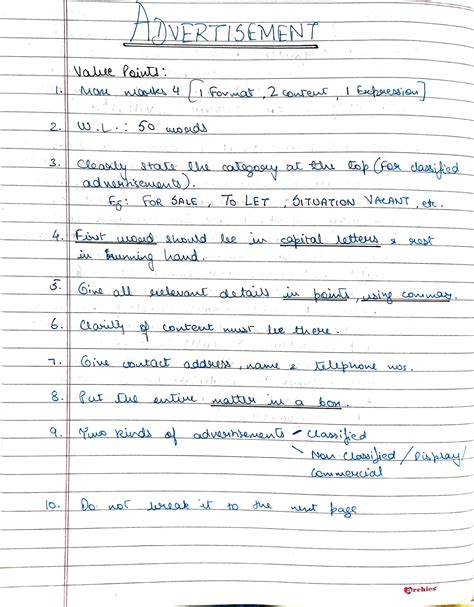 ADVERTISEMENT
Value Points:
1. Max marks 4 [1 Format, 2 content, 1 Expression]
2. W.L.: 50 words
3. Clearly state the category at the top (For classified
advertisements).
Eg: FOR SALE, TO LET, SITUATION VACANT, etc.
4. First word should be in capital letters & rest
in running hand.
5. Give all relevant details in points, using commas.
6. Clarity of content must be there.
7. Give contact address, name & telephone nos.
8. Put the entire matter in a box.
9. Two kinds of advertisements - Classified
Non Classified / Display /
Commercial
10. Do not break it to the next page
Archies